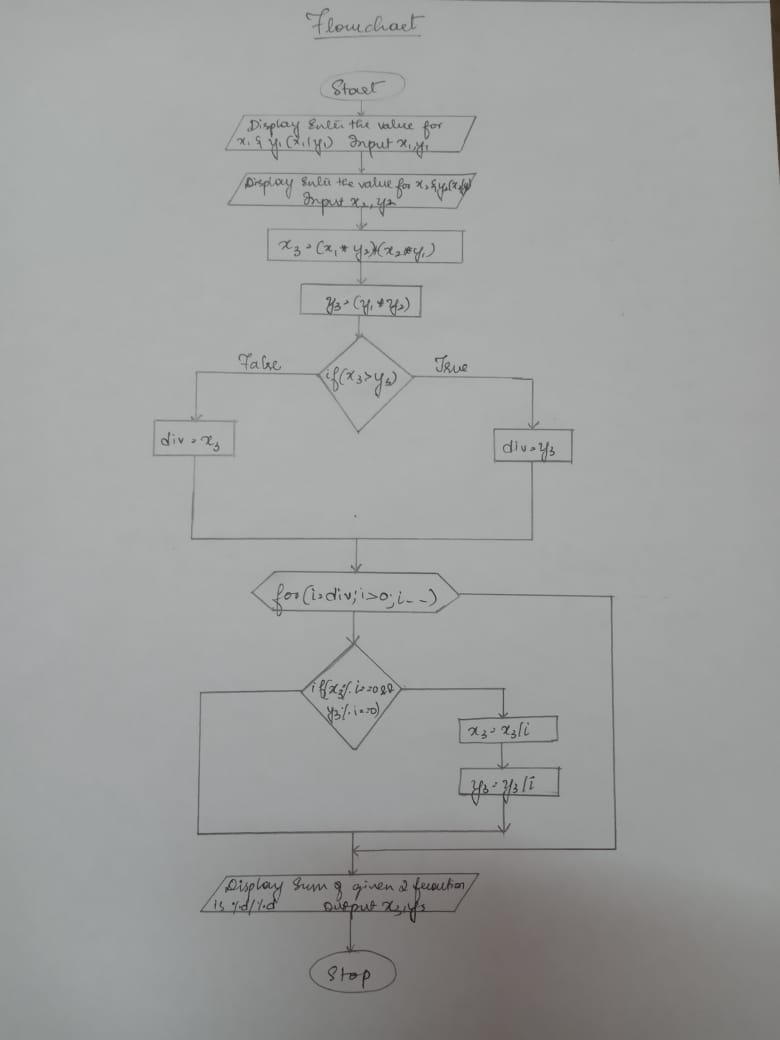 Flowchart
Start
Display Enter the value for
x₁ & y₁ (x₁/y₁) Input x₁, y₁
Display Enter the value for x₂ & y₂ (x₂/y₂)
Input x₂, y₂
x₃ = (x₁ * y₂)+(x₂*y₁)
y₃ = (y₁ * y₂)
False
if(x₃>y₃)
True
div = x₃
div = y₃
for(i=div; i>0; i--)
if(x₃%i==0 &&
y₃%i==0)
x₃ = x₃/i
y₃ = y₃/i
Display Sum of given 2 fraction
is %d/%d Output x₃, y₃
Stop